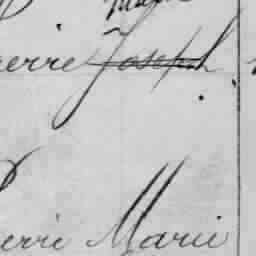 Pierre Joseph
Pierre Marie